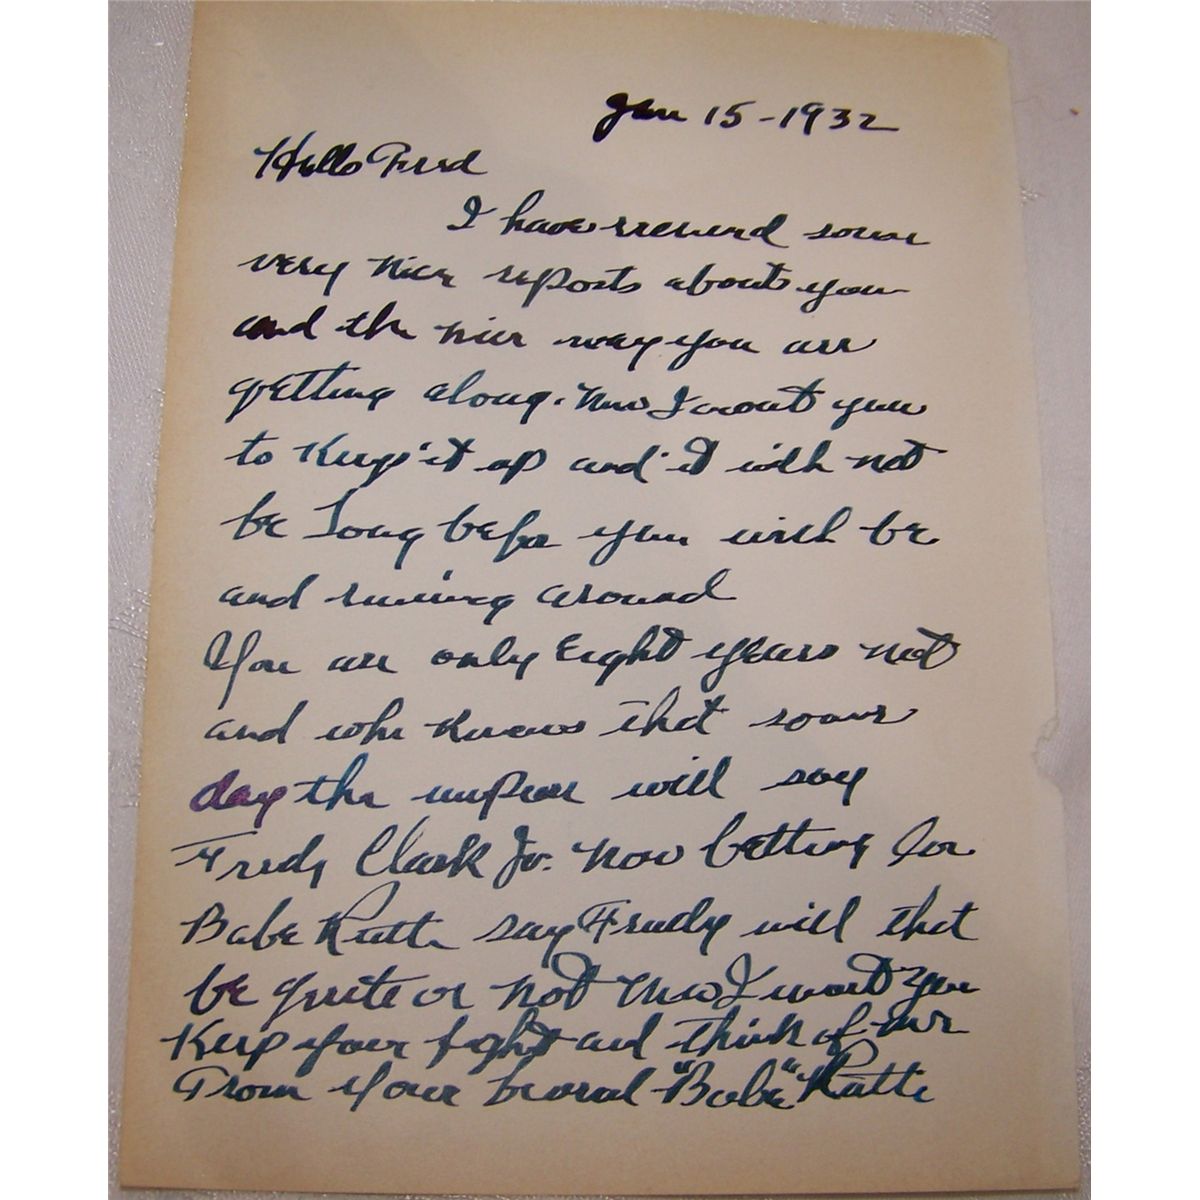 Jan 15 - 1932
Hello Fred
I have received some
very nice reports about you
and the nice way you are
getting along. Now I want you
to keep it up and it will not
be long before you will be
and running around
You are only Eight years not
and who knows that some
day the umpire will say
Fredy Clark Jr. now batting for
Babe Ruth say Fredy will that
be quite or not Now I want you
Keep your fight and think of me
From your "Babe" Ruth